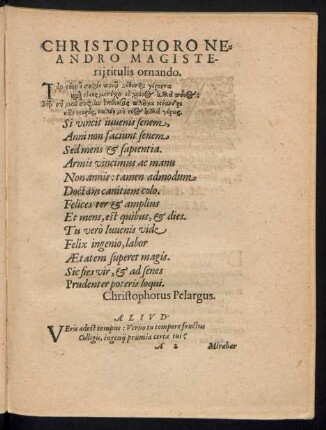 CHRISTOPHORO NE-
ANDRO MAGISTE-
rij titulis ornando.
Si vincit iuvenis senem,
Anni non faciunt senem
Sed mens & sapientia.
Armis vincimus ac manu
Non annis: tamen admodum
Doctam canitiem colo.
Felices ter & amplius
Et mens, est quibus, & dies.
Tu verò Iuvenis vide
Felix ingenio, labor
Ætatem superet magis.
Sic fies vir, & ad senes
Prudenter poteris loqui.
Christophorus Pelargus.
ALIVD
VEris adest tempus: Verno tu tempore fructus
Colligis, ingenij præmia certa tui:
A 2 Mirabar